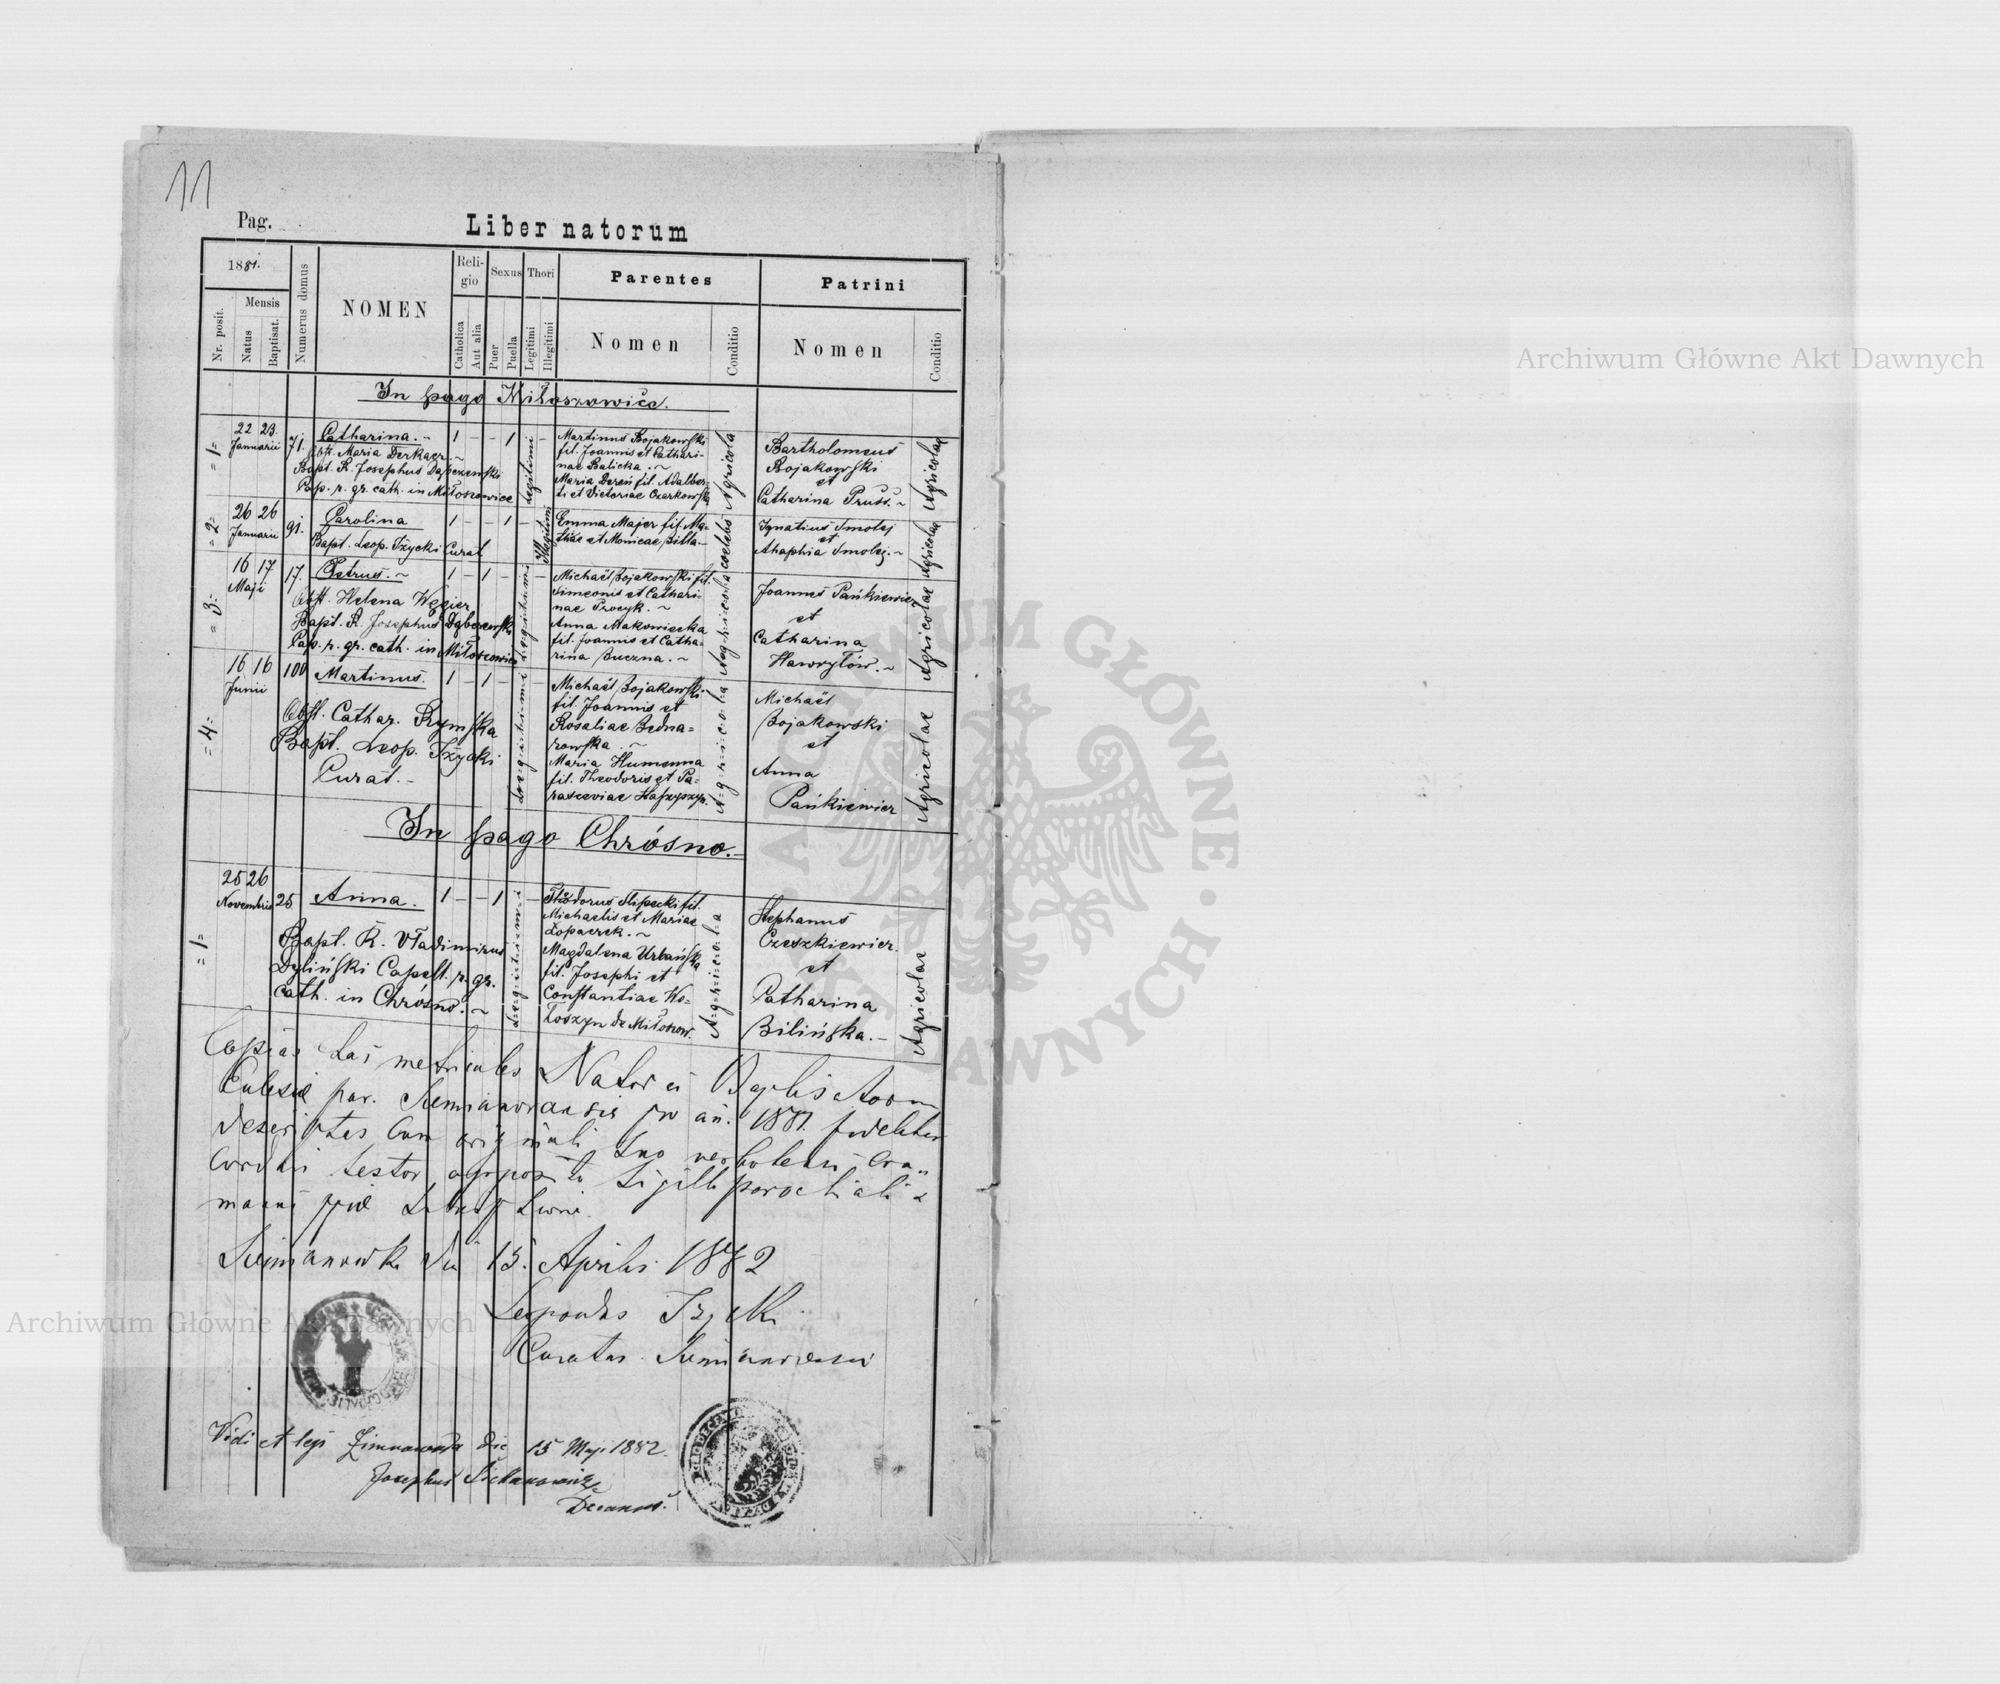 11
Pag.
Liber natorum
1881.
Nr. posit.
Mensis
Natus
Baptisat.
Numerus domus
NOMEN
Reli-
gio
Catholica
Aut alia
Sexus
Puer
Puella
Thori
Legitimi
Illegitimi
Parentes
Nomen
Conditio
Patrini
Nomen
Conditio
In pago Miłoszowice.
=1=
22 23
Januarii
71.
Catharina.
Obst. Maria Derkacz.
Bapt. R. Josephus Dąbczewski
Cap. r. gr. cath. in Miłoszowice
1 – – 1 –
Legitimi
Martinus Bojakowski
fil. Joannis et Cathari-
nae Balicka.
Maria Dereń fil. Adalber-
ti et Victoriae Czarkowska
Agricola
Bartholomeus
Bojakowski
et
Catharina Pruss.
Agricolae
=2=
26 26
Januarii
91.
Carolina
Bapt. Leop. Iżycki Curat
1 – – 1 –
Illegitimi
Emma Majer fil. Ma-
thiae et Monicae Billa
coelebs
Ignatius Smolej
et
Ahaphia Smolej.
Agricolae
=3=
16 17
Maji
17.
Petrus.
Obst. Helena Węgier
Bapt. R. Josephus Dąbczewski
Cap. r. gr. cath. in Miłoszowice
1 – 1 – –
Legitimi
Michaël Bojakowski fil.
Simeonis et Cathari-
nae Procyk.
Anna Makowiecka
fil. Joannis et Catha-
rina Buczna.
Agricola
Joannes Pańkiewicz
et
Catharina
Hawryłów.
Agricolae
=4=
16 16
Junii
100
Martinus.
Obst. Cathar. Rymska
Bapt. Leop. Iżycki
Curat.
1 – 1 – –
Legitimi
Michaël Bojakowski
fil. Joannis et
Rosaliae Bedna=
rowska.
Maria Humenna
fil. Theodoris et Pa=
rasceviae
Agricola
Michaël
Bojakowski
et
Anna
Pańkiewicz
Agricolae
In pago Chrósno.
=1=
25 26
Novembris
25
Anna.
Bapt. R. Vładimirus
Dyliński Capell. r. gr.
cath. in Chrósno.
1 – – 1 –
Legitimi
Theodorus Slipecki fil.
Michaelis et Mariae
Łopaczek.
Magdalena Urbańska
fil. Josephi et
Constantiae Wo=
łoszyn de Miłoszow.
Agricola
Stephanus
Czeszkiewicz.
et
Catharina
Bilińska.
Agricolae
Copias has metricales Nator et Baptisatorum
Eclesiae par. Siemianoviensis pro an. 1881. fideliter
descriptas cum originali suo verbotenus con=
cordari testor apposito sigillo parochiali &
manus
Siemianowka die 15. Aprilis 1882
Leopoldus Iżycki
Curatus
Vidi et legi Zimnawoda die 15 Maji 1882.
Josephus
Decanus.
Archiwum Główne Akt Dawnych
Archiwum Główne Akt Dawnych
ARCHIWUM GŁÓWNE AKT DAWNYCH